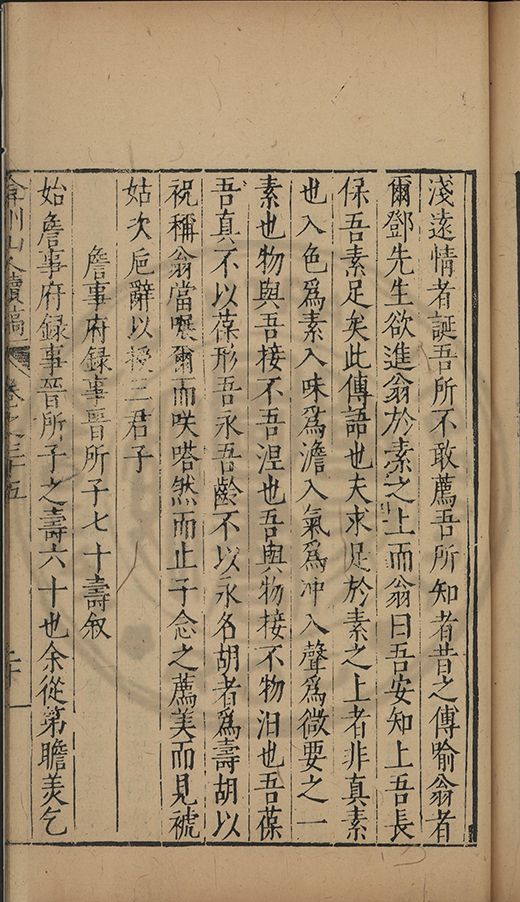 淺遠情者誕吾所不敢薦吾所知者昔之傳喻翁者
爾鄧先生欲進翁於素之上而翁曰吾安知上吾長
保吾素足矣此傳語也夫求足於素之上者非真素
也入色爲素入味爲澹入氣爲冲入聲爲微要之一
素也物與吾接不吾涅也吾與物接不物汩也吾葆
吾真不以葆形吾永吾齡不以永名胡者爲壽胡以
祝稱翁當囅爾而咲嗒然而止子念之薦美而見褫
姑次巵辭以授三君子
詹事府録事晋所子七十壽叙
始詹事府録事晋所子之壽六十也余從弟瞻美乞
弇州山人續稿
卷之三十五